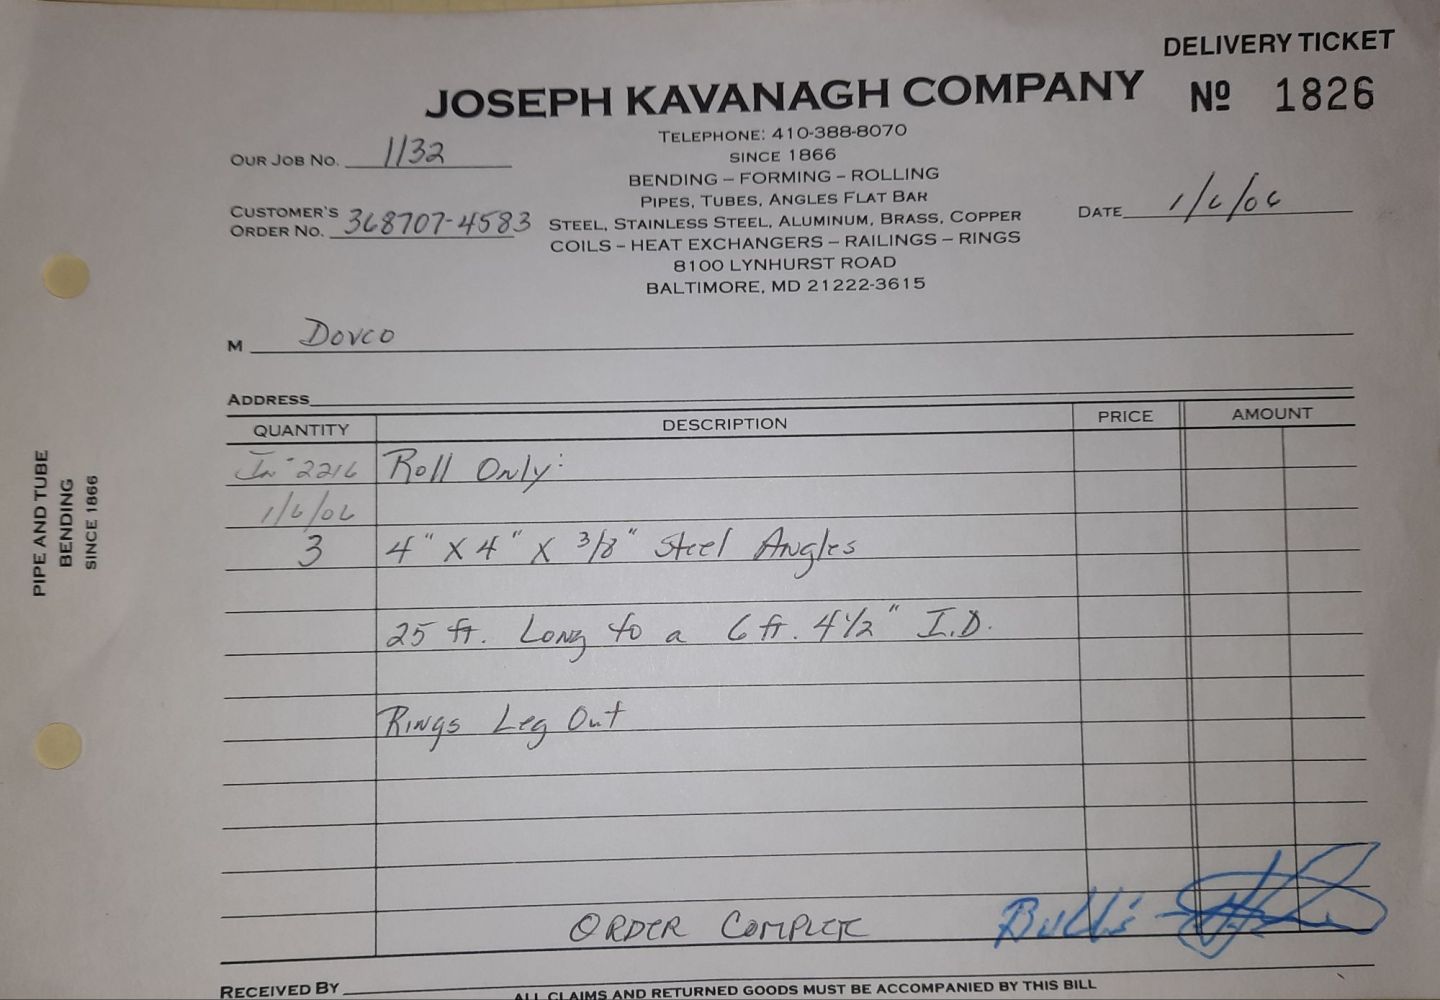 DELIVERY TICKET
JOSEPH KAVANAGH COMPANY
Nº 1826
TELEPHONE: 410-388-8070
OUR JOB NO. 1132
SINCE 1866
BENDING – FORMING – ROLLING
PIPES, TUBES, ANGLES FLAT BAR
CUSTOMER'S
ORDER NO. 368707-4583
STEEL, STAINLESS STEEL, ALUMINUM, BRASS, COPPER
DATE 1/6/06
COILS – HEAT EXCHANGERS – RAILINGS – RINGS
8100 LYNHURST ROAD
BALTIMORE, MD 21222-3615
M Dovco
ADDRESS
QUANTITY DESCRIPTION PRICE AMOUNT
2216 Roll Only:
1/6/06
3 4" X 4" X 3/8" Steel Angles
25 ft. Long to a 6 ft. 4 1/2" I.D.
Rings Leg Out
ORDER COMPLETE
RECEIVED BY
ALL CLAIMS AND RETURNED GOODS MUST BE ACCOMPANIED BY THIS BILL
PIPE AND TUBE
BENDING
SINCE 1866